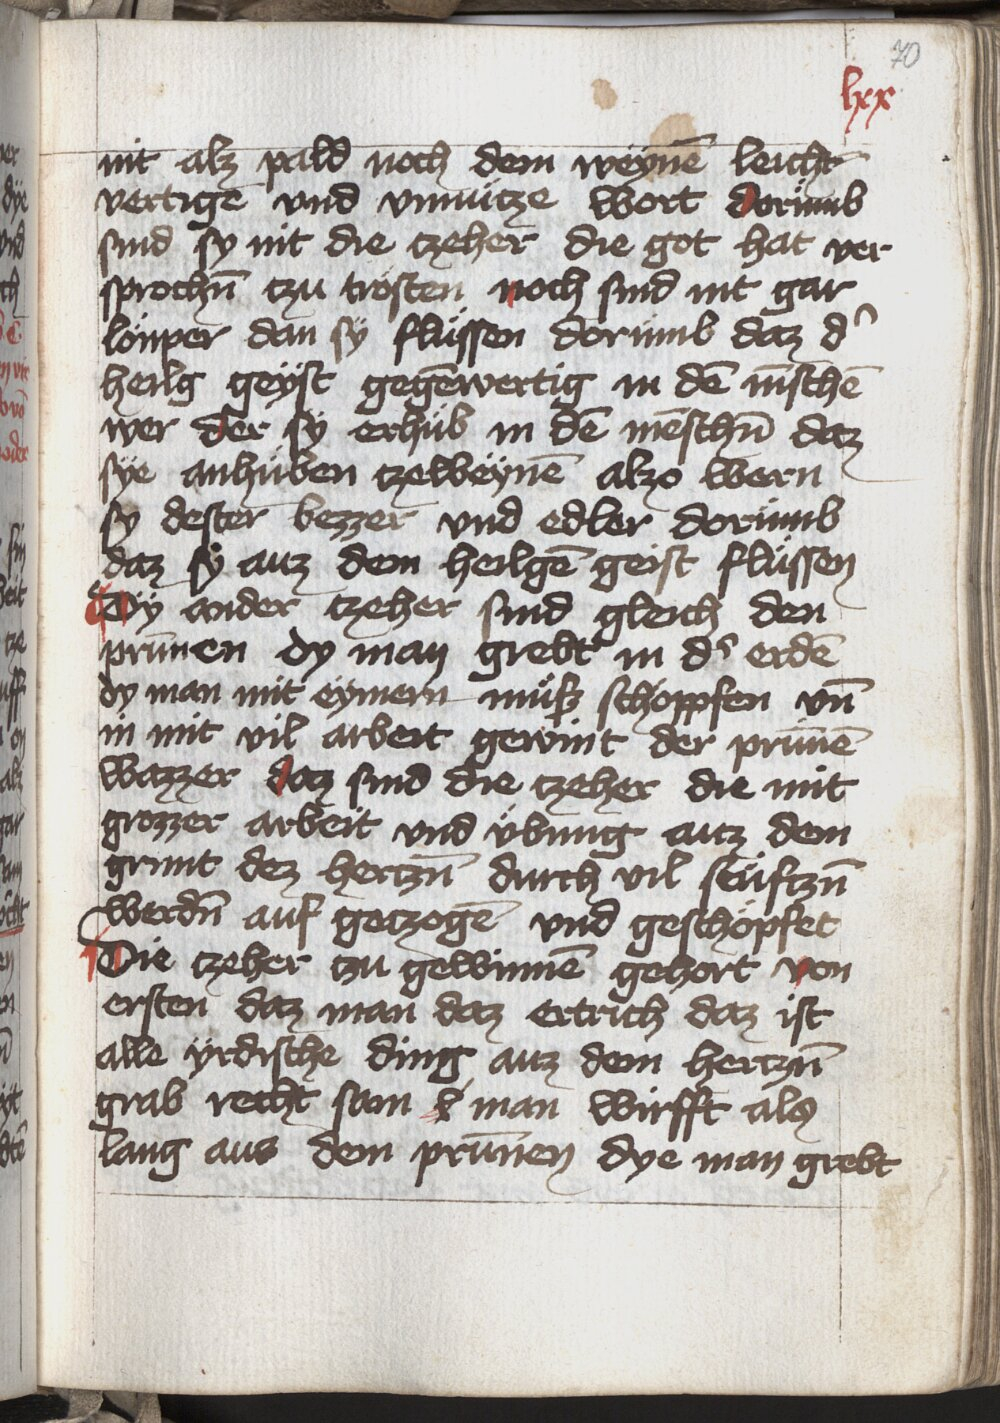 70
lxx
nit alz pald noch dem weynē leicht
vertigē vnd vnnutze wort dorumb
sind sy nit die czeher die got hat ver
sprochn̄ czu trosten noch sind nit gar
lauper dan sÿ flüssen dorumb daz d᾿
heilg geyst gegēwertig in dē mēschē
wer der sÿ erhüb in dē mēschn̄ daz
sÿe anhüben czeweÿnē alzo wern
sy dester bezzer vnd edler dorumb
daz sÿ auz dem heilgē geist flüssen
Dÿ ander czeher sind gleich den
prūnen dy man grebt in d᾿ erdē
dy man mit eymern müß schöppfen vn̄
in mit vil arbeit gewint der prūnē
wazzer daz sind die czeher die mit
grozzer arbeit vnd übung auz dem
grunt dez hertzn̄ durch vil seüftzn̄
werdn̄ auf getzogē vnd geschöpfet
Die czeher czu gewinnē gehort von
ersten daz man daz ertrich daz ist
alle ÿrdische ding auz dem hertzn̄
grab recht sam man wirfft als
lang aus dem prūnen dye man grebt